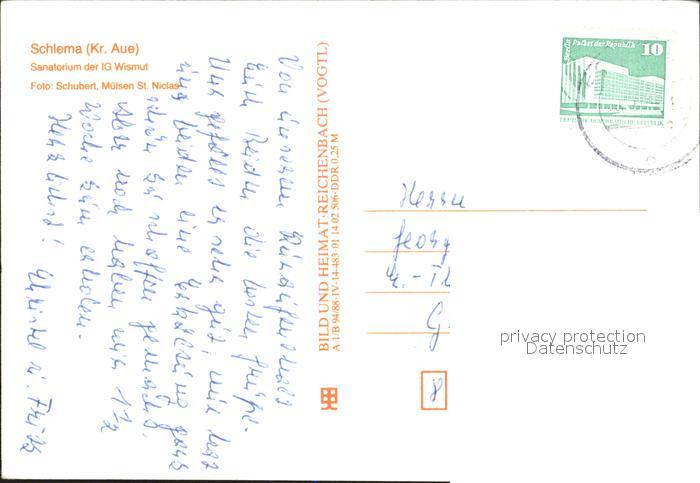 Schlema (Kr. Aue)
Sanatorium der IG Wismut
Foto: Schubert, Mülsen St. Niclas
Von unserem
Euch Beiden die besten Grüße.
Uns gefällt es sehr gut,
uns beiden eine ganz
schön zu schaffen gemacht.
Aber noch haben wir 1 1/2
Woche zum erholen.
Herzlichst! u. Fritz
BILD UND HEIMAT·REICHENBACH (VOGTL)
A 1/B 94/88·IV-14-483·01 14 02 506·DDR 0,25 M
Berlin Palast der Republik 10
DEUTSCHE DEMOKRATISCHE REPUBLIK
Herrn
Georg
G.
8
privacy protection
Datenschutz